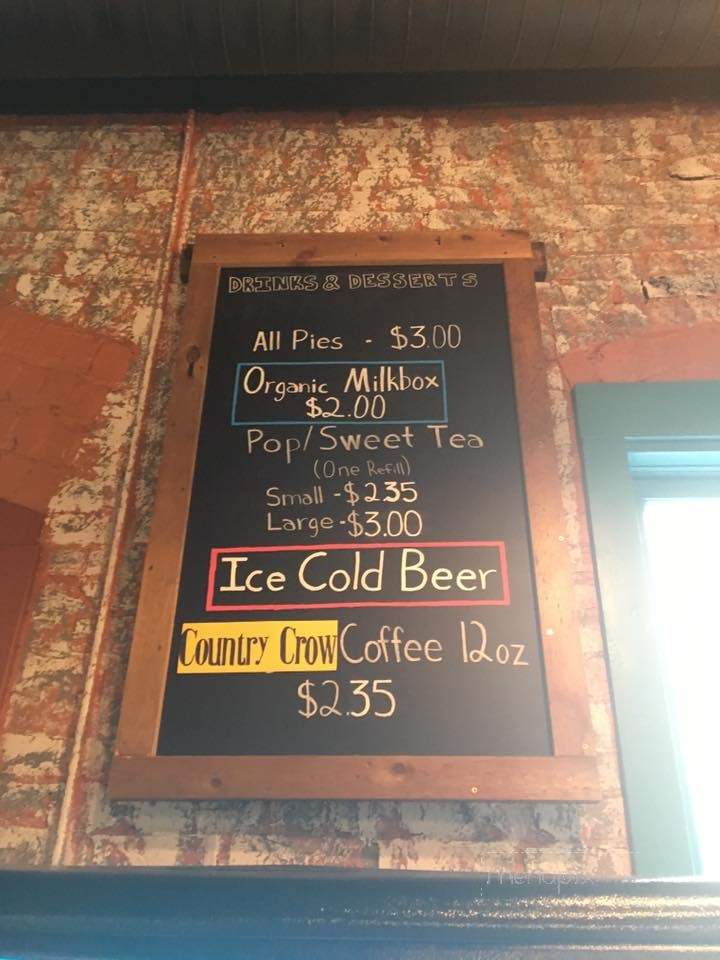 DRINKS & DESSERTS
All Pies - $3.00
Organic Milkbox
$2.00
Pop/Sweet Tea
(One Refill)
Small - $2.35
Large - $3.00
Ice Cold Beer
Country Crow Coffee 12oz
$2.35